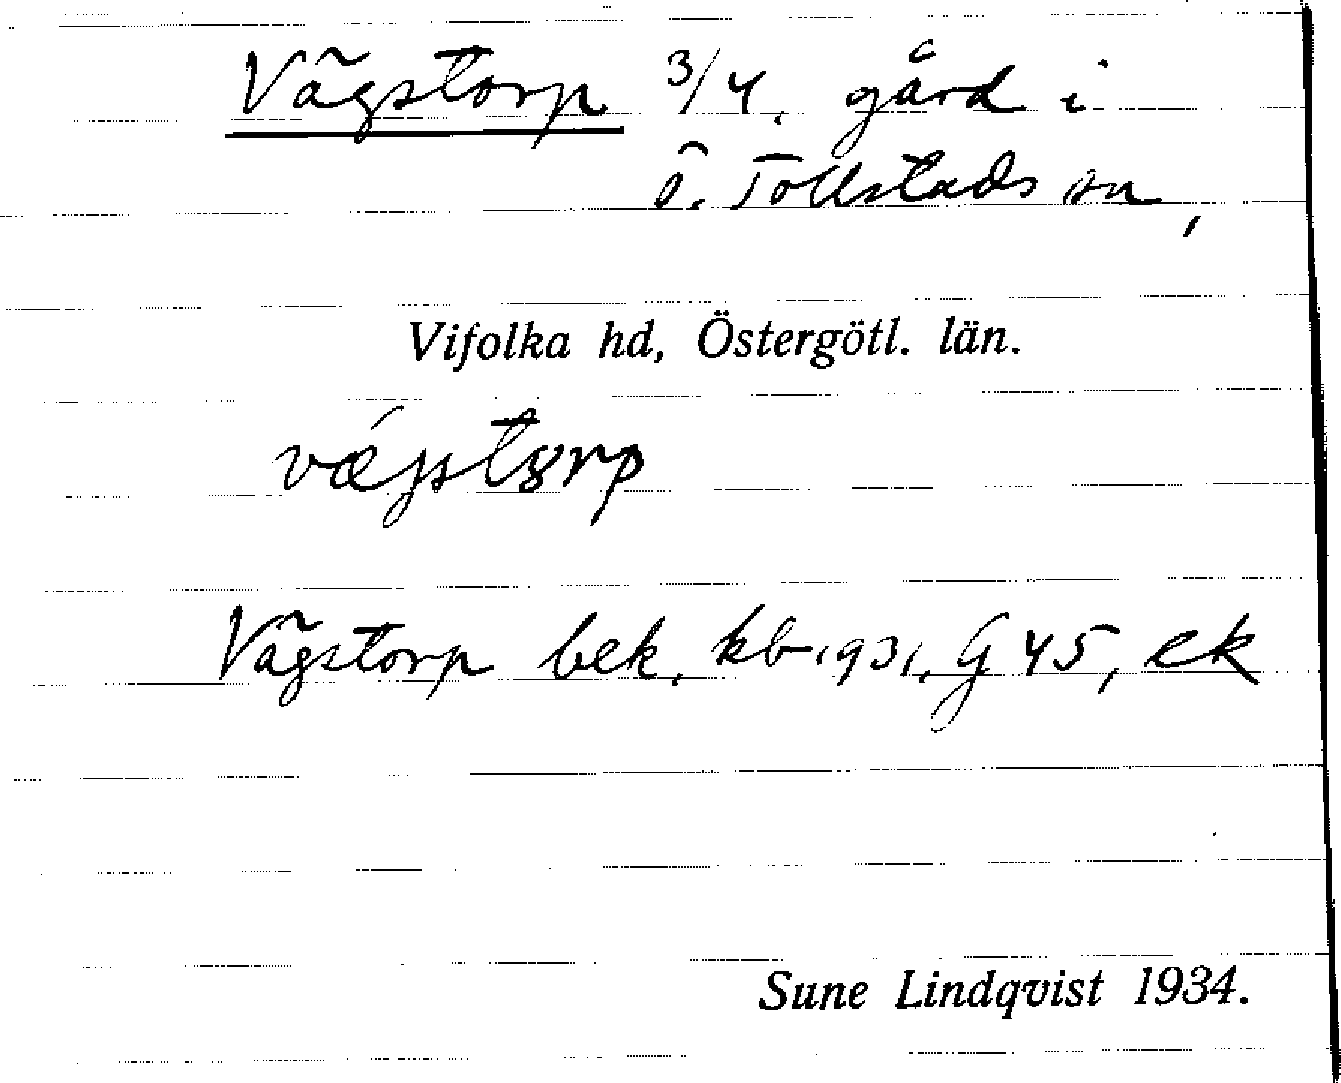 Vägstorp 3/4, gård i
Ö. Tollstads sn,
Vifolka hd, Östergötl. län.
Vägstorp bek. kb 1931, G 45, ek
Sune Lindqvist 1934.